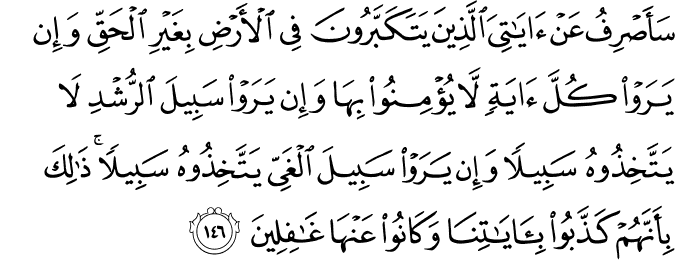 سَأَصۡرِفُ عَنۡ ءَايَٰتِيَ ٱلَّذِينَ يَتَكَبَّرُونَ فِي ٱلۡأَرۡضِ بِغَيۡرِ ٱلۡحَقِّ وَإِن
يَرَوۡاْ كُلَّ ءَايَةٖ لَّا يُؤۡمِنُواْ بِهَا وَإِن يَرَوۡاْ سَبِيلَ ٱلرُّشۡدِ لَا
يَتَّخِذُوهُ سَبِيلٗا وَإِن يَرَوۡاْ سَبِيلَ ٱلۡغَيِّ يَتَّخِذُوهُ سَبِيلٗاۚ ذَٰلِكَ
بِأَنَّهُمۡ كَذَّبُواْ بِـَٔايَٰتِنَا وَكَانُواْ عَنۡهَا غَٰفِلِينَ ١٤٦